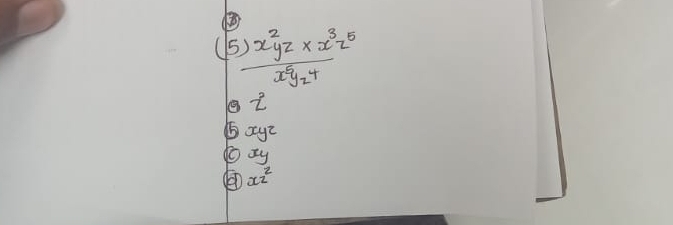 (5) x²yz × x³z⁵
x⁵yz⁴
ⓐ z²
ⓑ xyz
ⓒ xy
ⓓ xz²